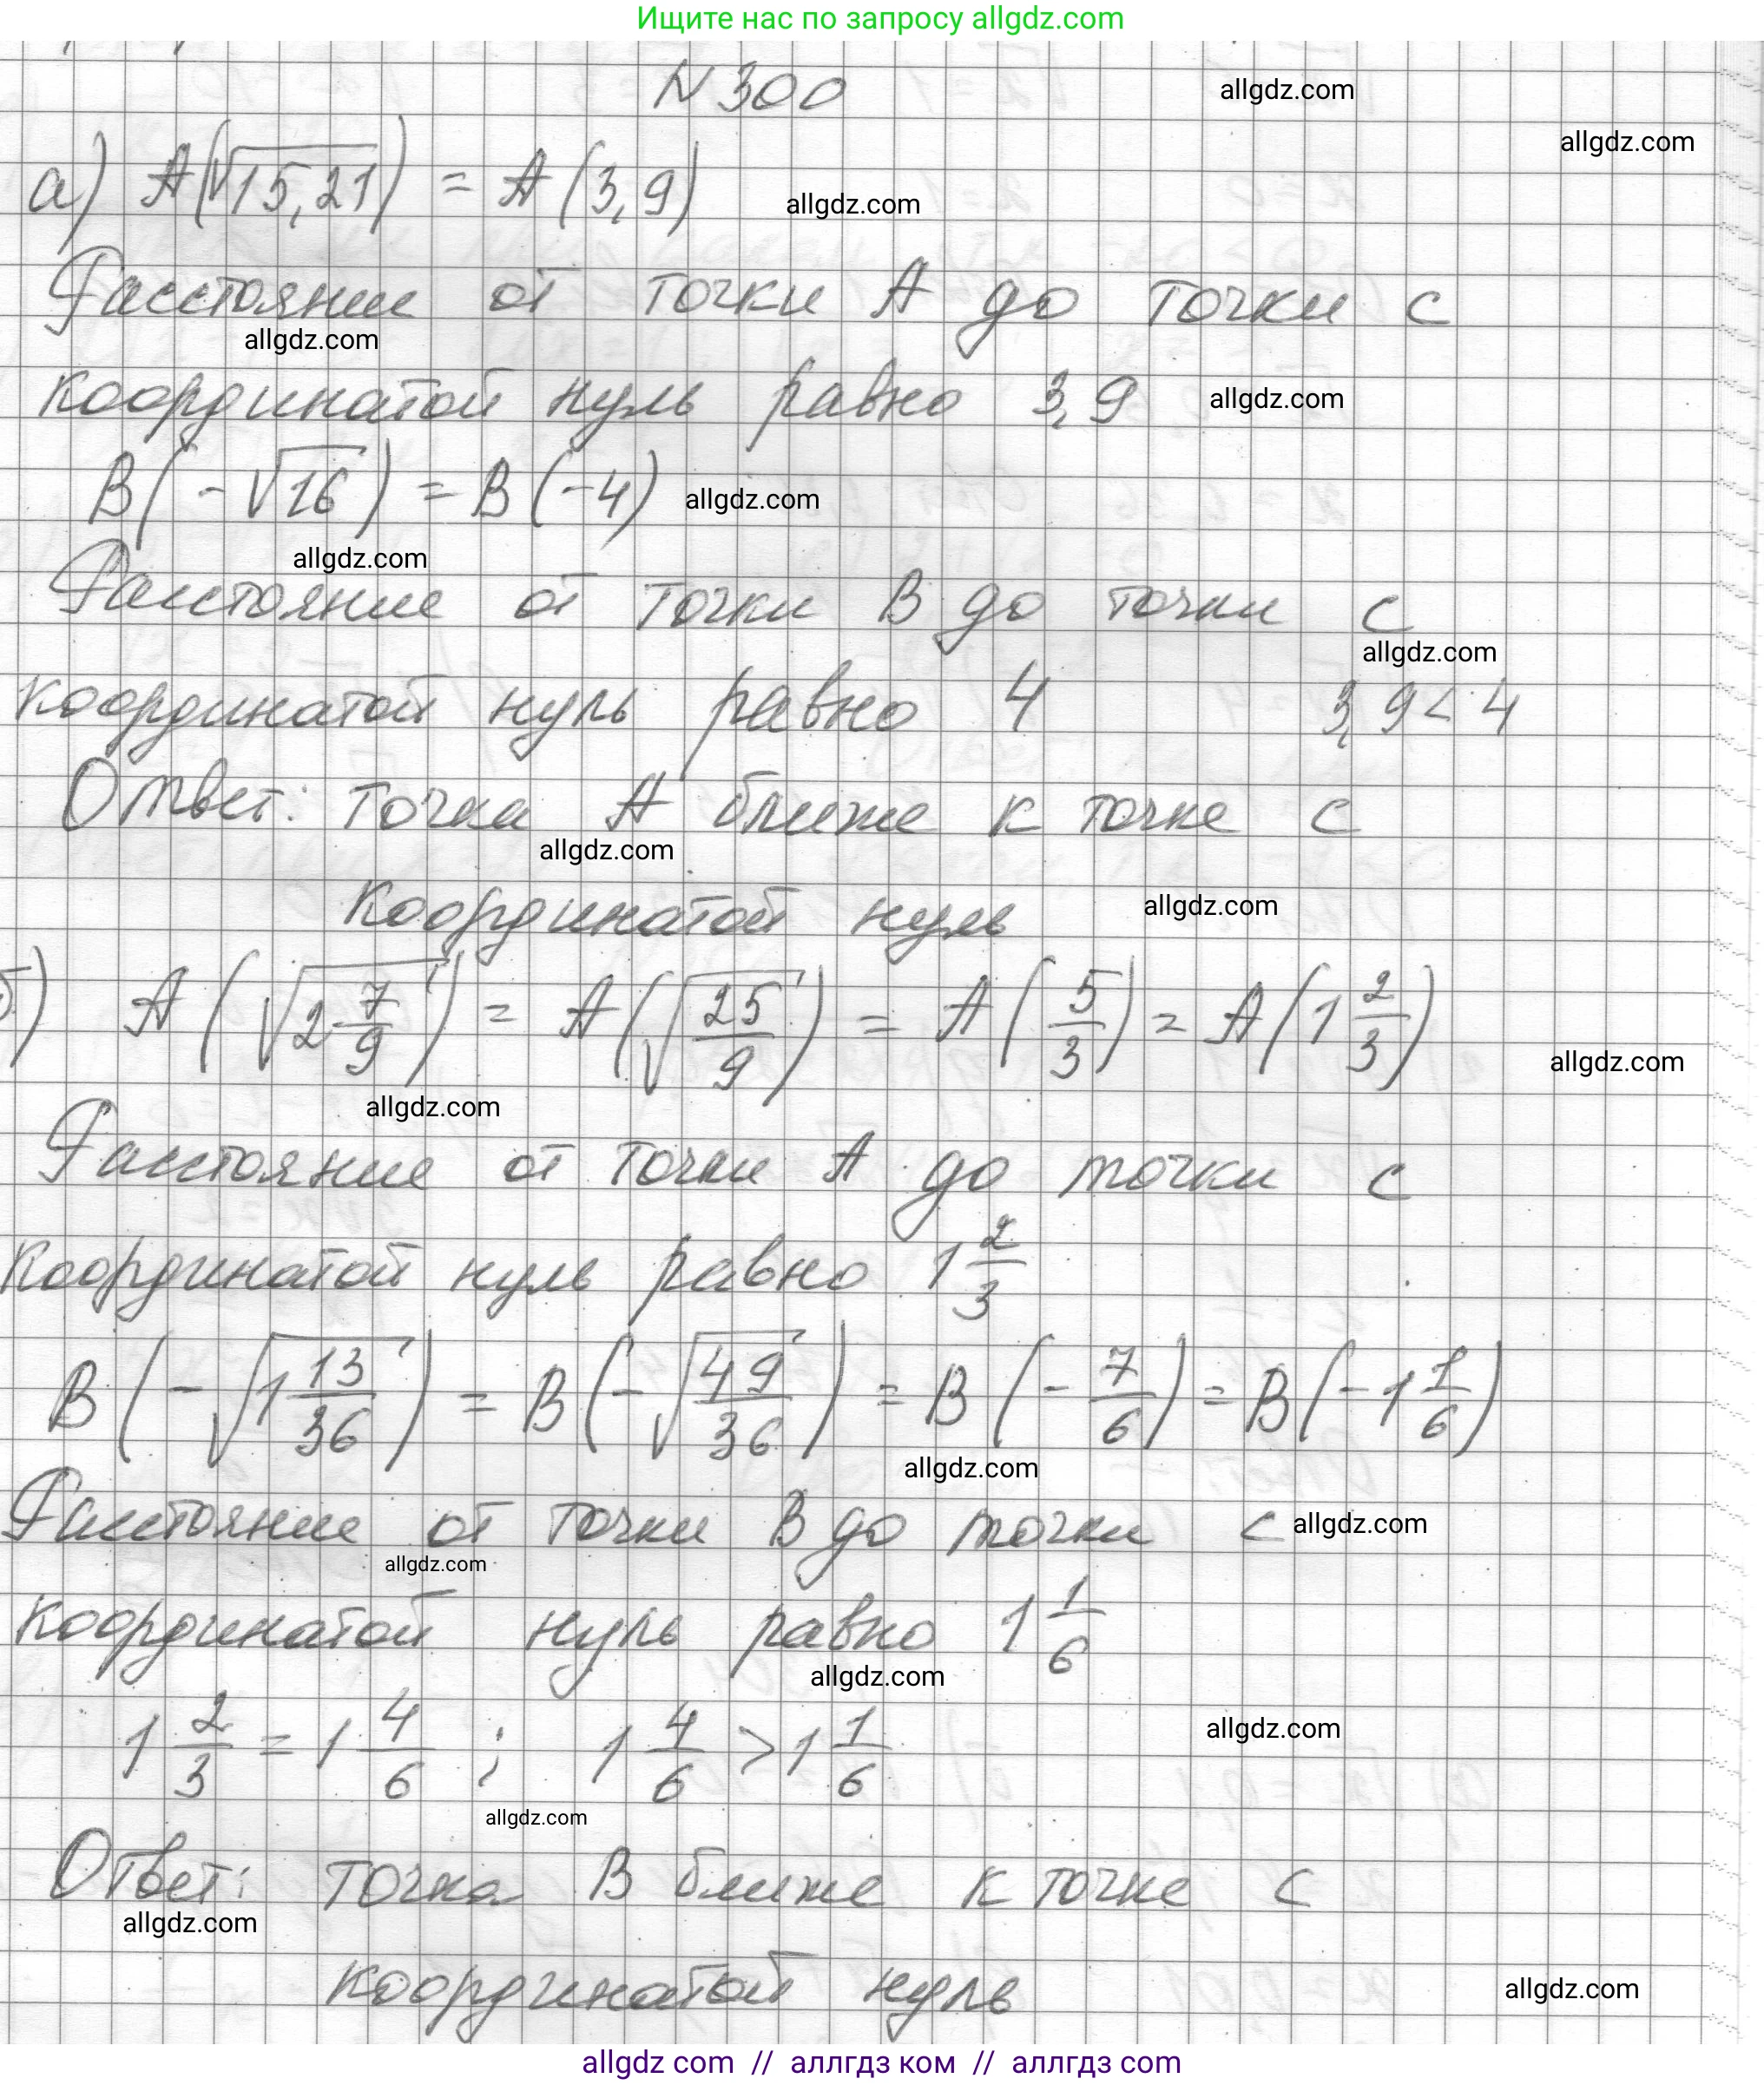 Ищите нас по запросу allgdz.com
N 300
allgdz.com
allgdz.com
а) A(√15,21) = A(3,9)
allgdz.com
Расстояние от точки A до точки с
allgdz.com
координатой нуль равно 3,9
allgdz.com
B(-√16) = B(-4)
allgdz.com
allgdz.com
Расстояние от точки B до точки с
allgdz.com
координатой нуль равно 4 3,9 < 4
Ответ: точка A ближе к точке с
allgdz.com
координатой нуль
allgdz.com
б) A(√2 7/9) = A(√25/9) = A(5/3) = A(1 2/3)
allgdz.com
allgdz.com
Расстояние от точки A до точки с
координатой нуль равно 1 2/3
B(-√1 13/36) = B(-√49/36) = B(-7/6) = B(-1 1/6)
allgdz.com
Расстояние от точки B до точки с
allgdz.com
allgdz.com
координатой нуль равно 1 1/6
allgdz.com
1 2/3 = 1 4/6 ; 1 4/6 > 1 1/6
allgdz.com
allgdz.com
Ответ: точка B ближе к точке с
allgdz.com
координатой нуль
allgdz.com
allgdz com // аллгдз ком // аллгдз com